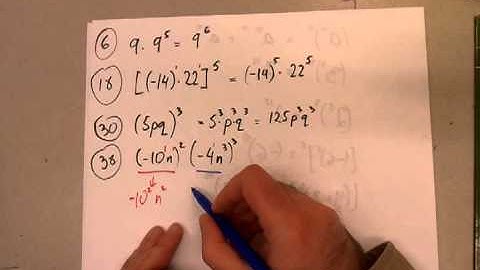 ⑥ 9 · 9⁵ = 9⁶
⑱ [(-14)¹ · 22¹]⁵ = (-14)⁵ · 22⁵
㉚ (5pq)³ = 5³ · p³ · q³ = 125p³q³
㊳ (-10¹n¹)² (-4¹n³)³
-10² n²